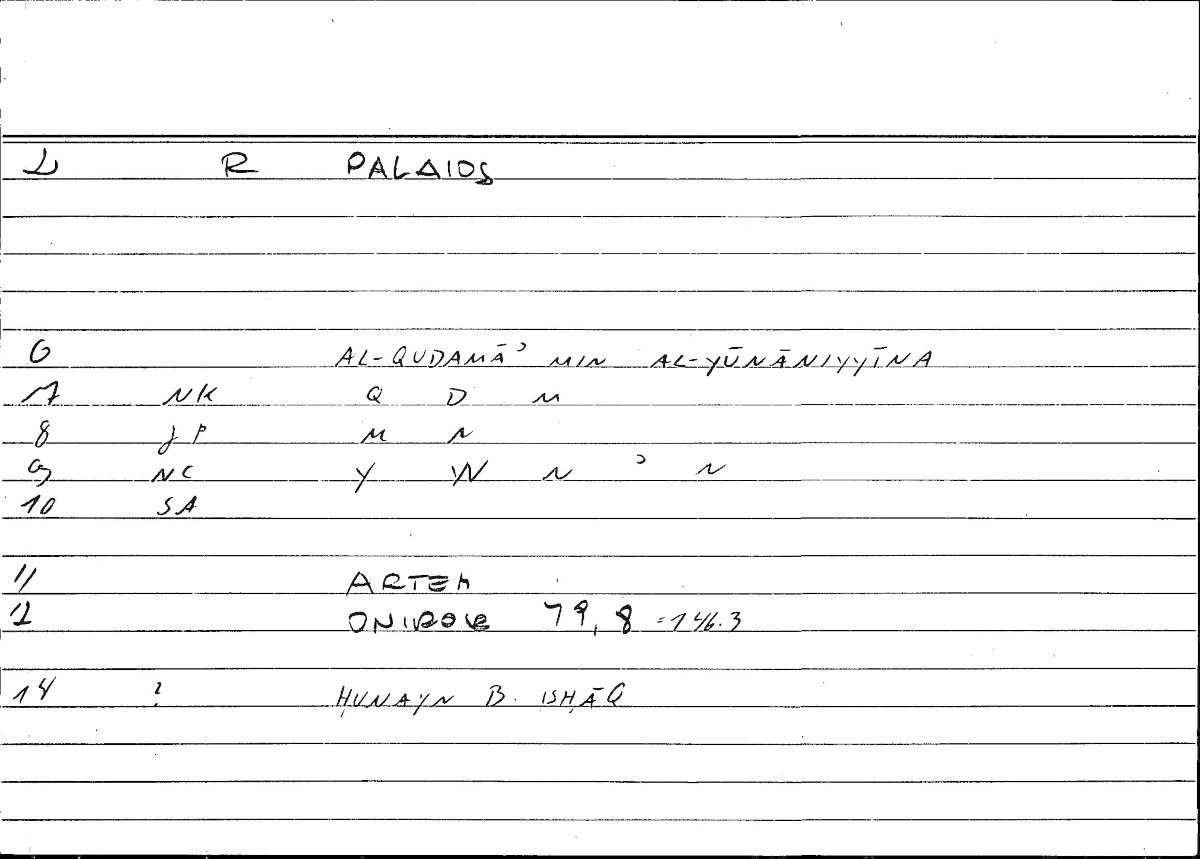 1 R PALAIOS
6 AL-QUDAMĀʾ MIN AL-YŪNĀNIYYĪNA
7 NK Q D M
8 JP M N
9 NC Y W N ʾ N
10 SA
11 ARTEM
12 ONIROCR 79, 8 =146.3
14 ? ḤUNAYN B. ISḤĀQ